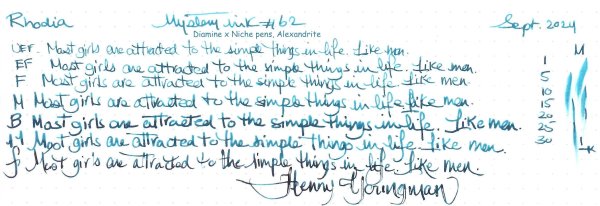 Rhodia Mystery ink #62 Sept. 2024
Diamine x Niche pens, Alexandrite
UEF. Most girls are attracted to the simple things in life. Like men. M
EF Most girls are attracted to the simple things in life. Like men. 1
F Most girls are attracted to the simple things in life. Like men. 5
10
M Most girls are attracted to the simple things in life. Like men. 15
B Most girls are attracted to the simple things in life. Like men. 20
25
Most girls are attracted to the simple things in life. Like men. 30
f Most girls are attracted to the simple things in life. Like men.
Henny Youngman